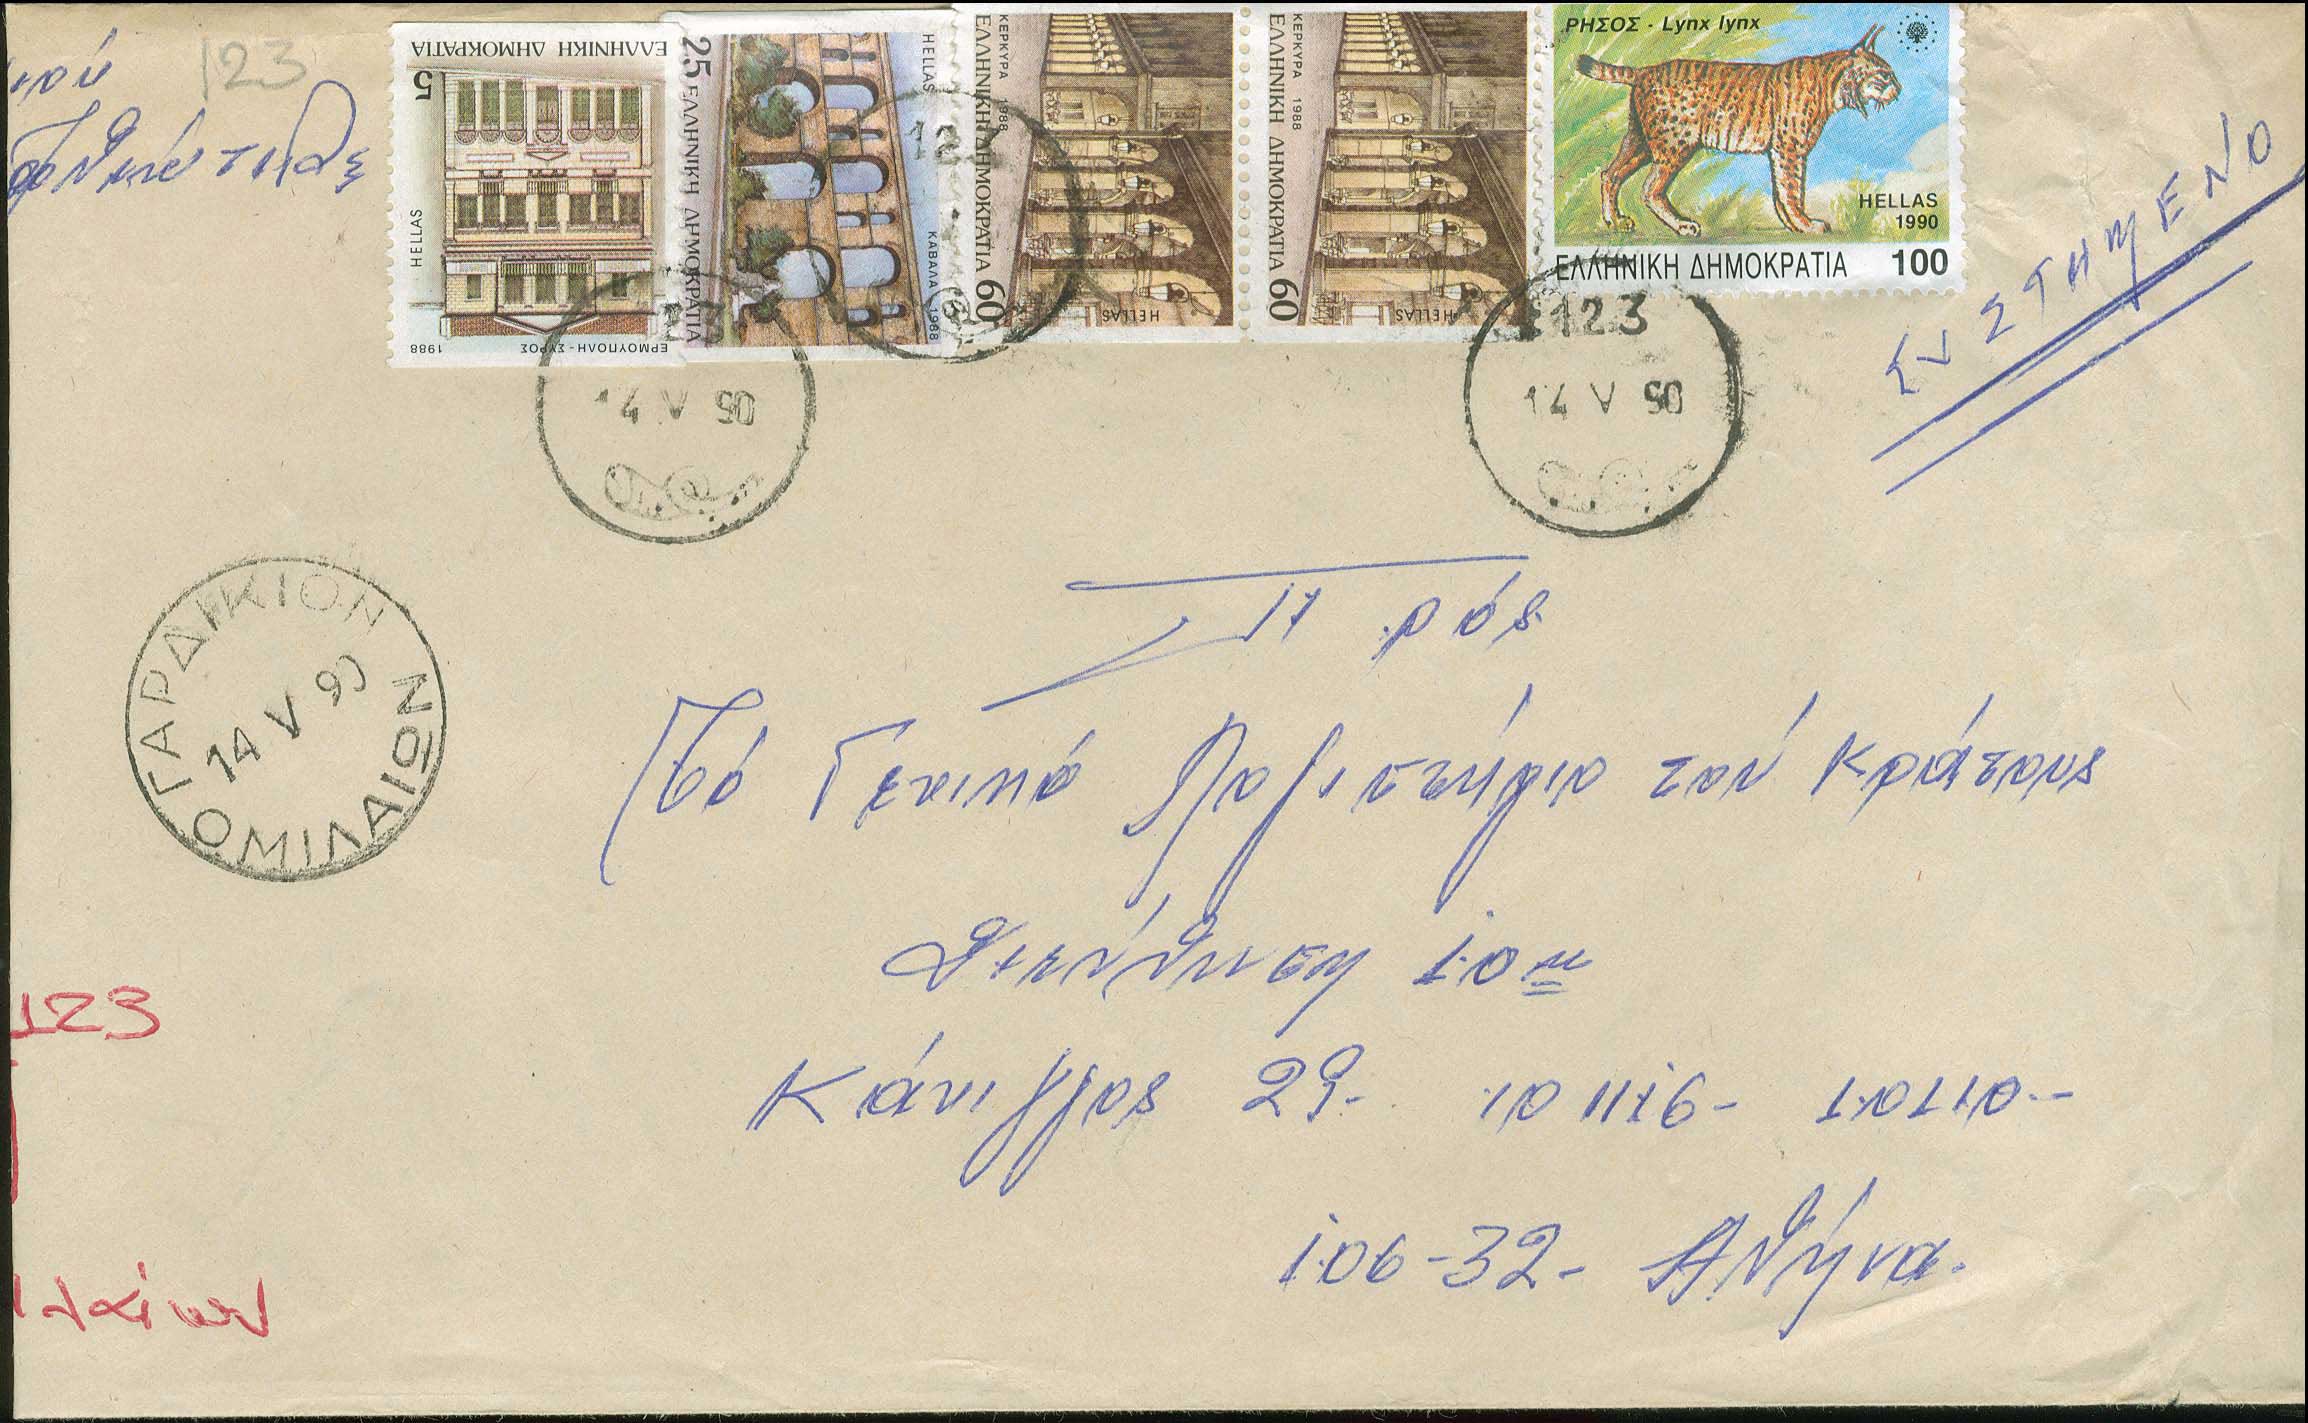 123
ΕΛΛΗΝΙΚΗ ΔΗΜΟΚΡΑΤΙΑ
5
HELLAS
ΕΡΜΟΥΠΟΛΗ - ΣΥΡΟΣ
1988
25 ΕΛΛΗΝΙΚΗ ΔΗΜΟΚΡΑΤΙΑ
HELLAS
ΚΑΒΑΛΑ 1988
ΚΕΡΚΥΡΑ 1988
ΕΛΛΗΝΙΚΗ ΔΗΜΟΚΡΑΤΙΑ 60
HELLAS
ΚΕΡΚΥΡΑ 1988
ΕΛΛΗΝΙΚΗ ΔΗΜΟΚΡΑΤΙΑ 60
HELLAS
ΡΗΣΟΣ - Lynx lynx
HELLAS
1990
ΕΛΛΗΝΙΚΗ ΔΗΜΟΚΡΑΤΙΑ 100
ΣΥΣΤΗΜΕΝΟ
14 V 90
123
14 V 90
ΓΑΡΔΙΚΙΟΝ
14 V 90
ΟΜΙΛΑΙΩΝ
Πρός
Τό Γενικό Λογιστήριο τού Κράτους
Διεύθυνση 10η
Κάνιγγος 29-
106-32- Αθήνα.
123
λαίων